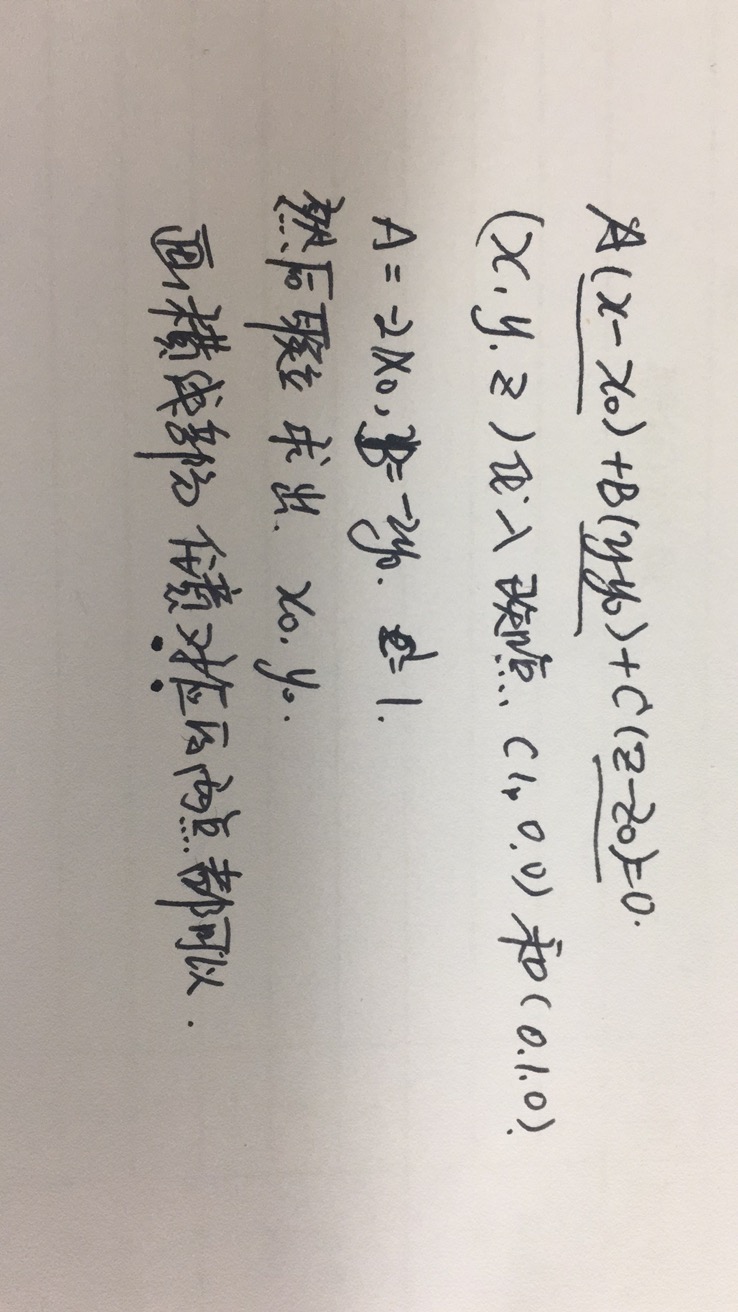 A(x-x₀)+B(y-y₀)+C(z-z₀)=0.
(x,y,z)代入两点 (1,0,0)和(0.1.0).
A=-2x₀,B=-2y₀. =1.
然后联立 求出. x₀.y₀.
画横线部分 任意对应后两点都可以.